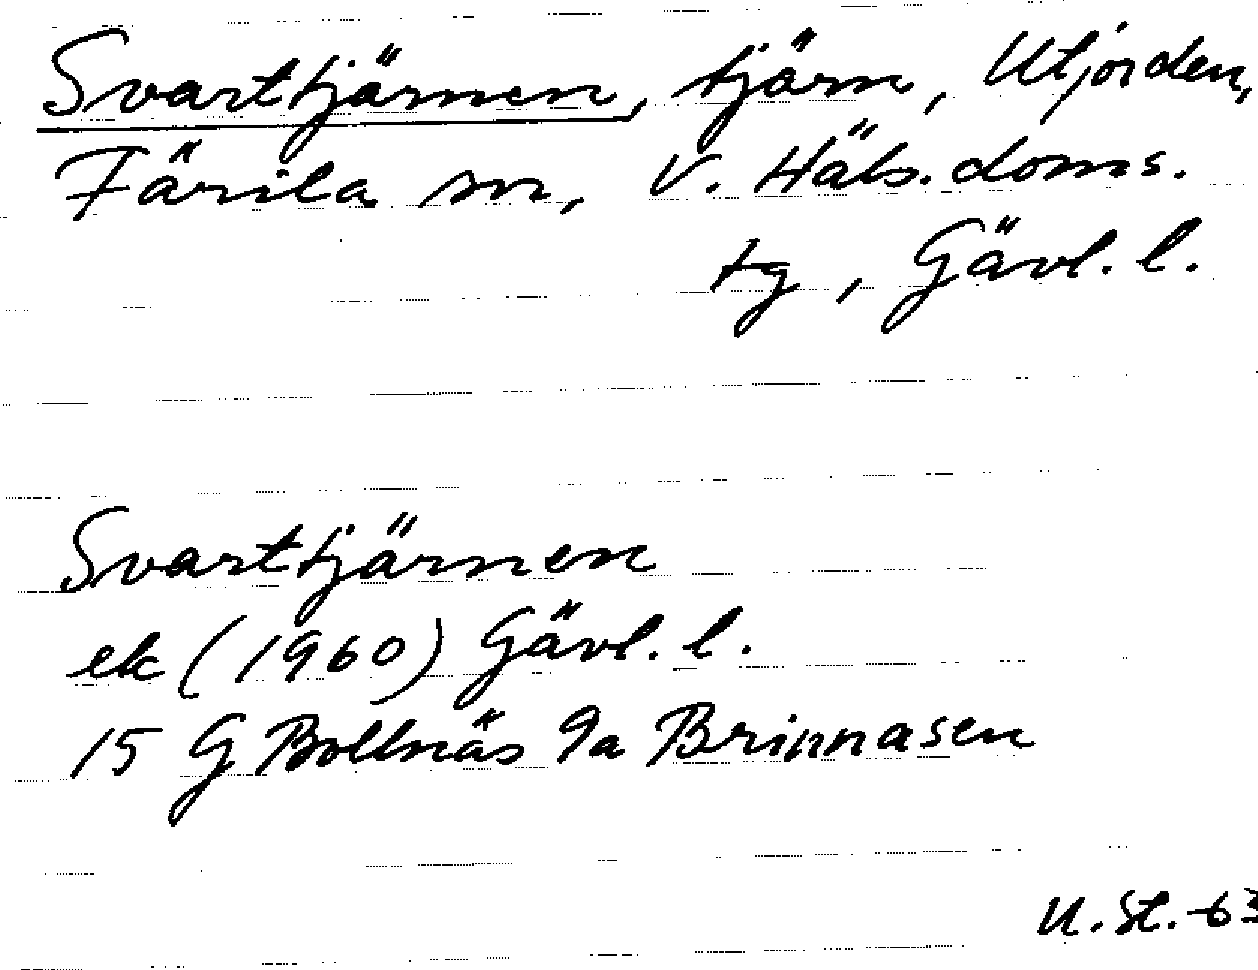 Svarttjärnen, tjärn, Utjorden,
Färila sn, V. Häls. doms.
tg, Gävl. l.
Svarttjärnen
ek (1960) Gävl. l.
15 G Bollnäs 9a Brinnåsen
U. St. -63